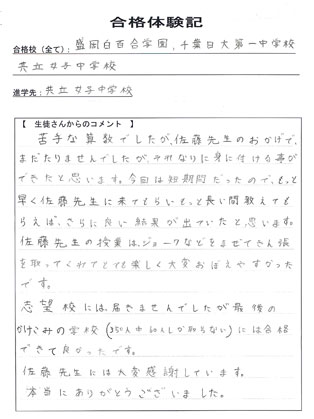 合格体験記
合格校（全て）：盛岡白百合学園，千葉日大第一中学校
共立女子中学校
進学先：共立女子中学校
【 生徒さんからのコメント 】
苦手な算数でしたが、佐藤先生のおかげで、
まだたりませんでしたが、それなりに身に付ける事が
できたと思います。今回は短期間だったので、もっと
早く佐藤先生に来てもらいもっと長い間教えても
らえば、さらに良い結果が出ていたと思います。
佐藤先生の授業は、ジョークなどをまぜてきん張
を取ってくれてとても楽しく大変おぼえやすかった
です。
志望校には、届きませんでしたが最後の
かけこみの学校（350人中60人しか取らない）には合格
できて良かったです。
佐藤先生には大変感謝しています。
本当にありがとうございました。